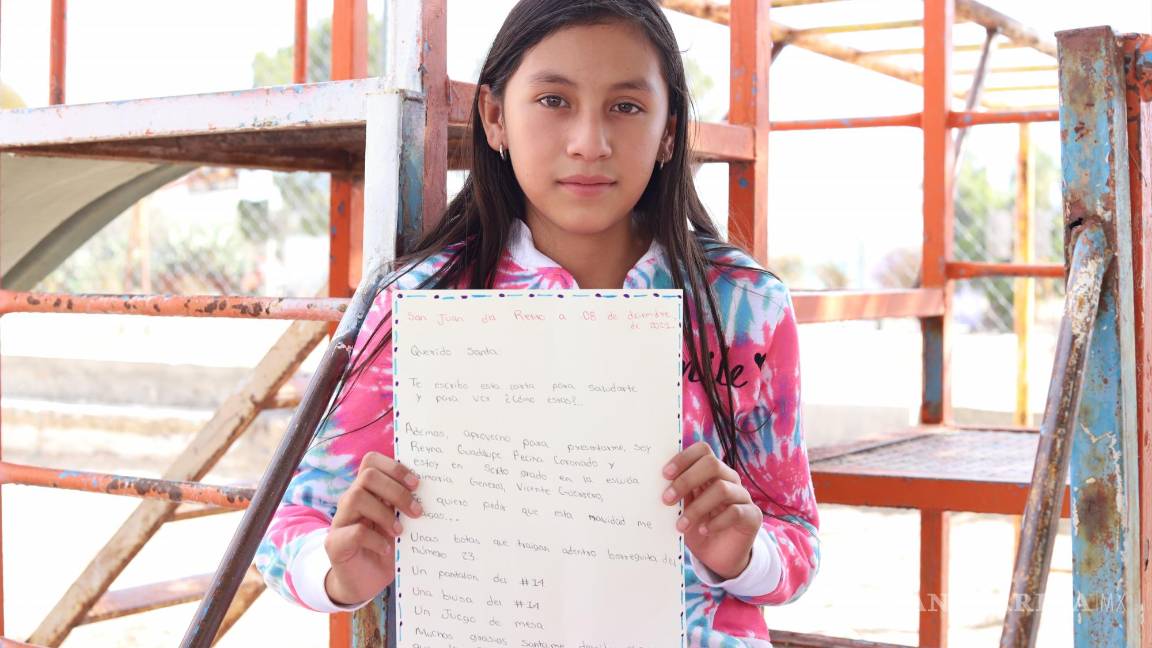 San Juan del Retiro a 08 de diciembre,
de 2021.
Querido Santa:
Te escribo esta carta para saludarte
y para ver ¿Cómo estas?...
Ademas, aprovecho para presentarme, soy
Reyna Guadalupe Pecina Coronado y
estoy en sexto grado en la escuela
primaria General, Vicente Guerrero,
quiero pedir que esta navidad me
Unas botas que traigan adentro borreguita del
número 23
Un pantalon del #14
Una blusa del #14
Un Juego de mesa
Muchas grasias santa me
mile